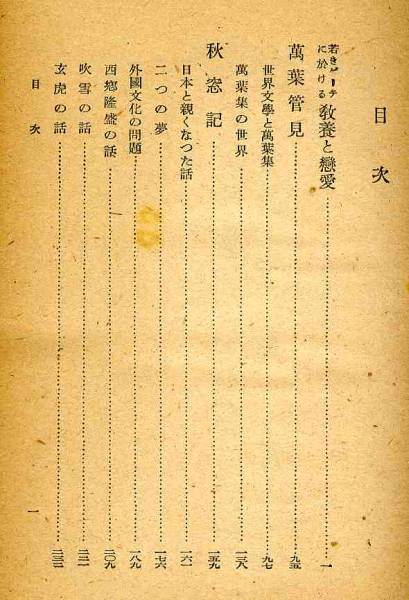 目次
若きゲーテに於ける教養と戀愛……一
萬葉管見……九五
世界文學と萬葉集……九七
萬葉集の世界……一三八
秋窓記……一五九
日本と親くなつた話……一六一
二つの夢……一七六
外國文化の問題……一八九
西鄕隆盛の話……二〇九
吹雪の話……二二一
玄虎の話……二三二
目次 一